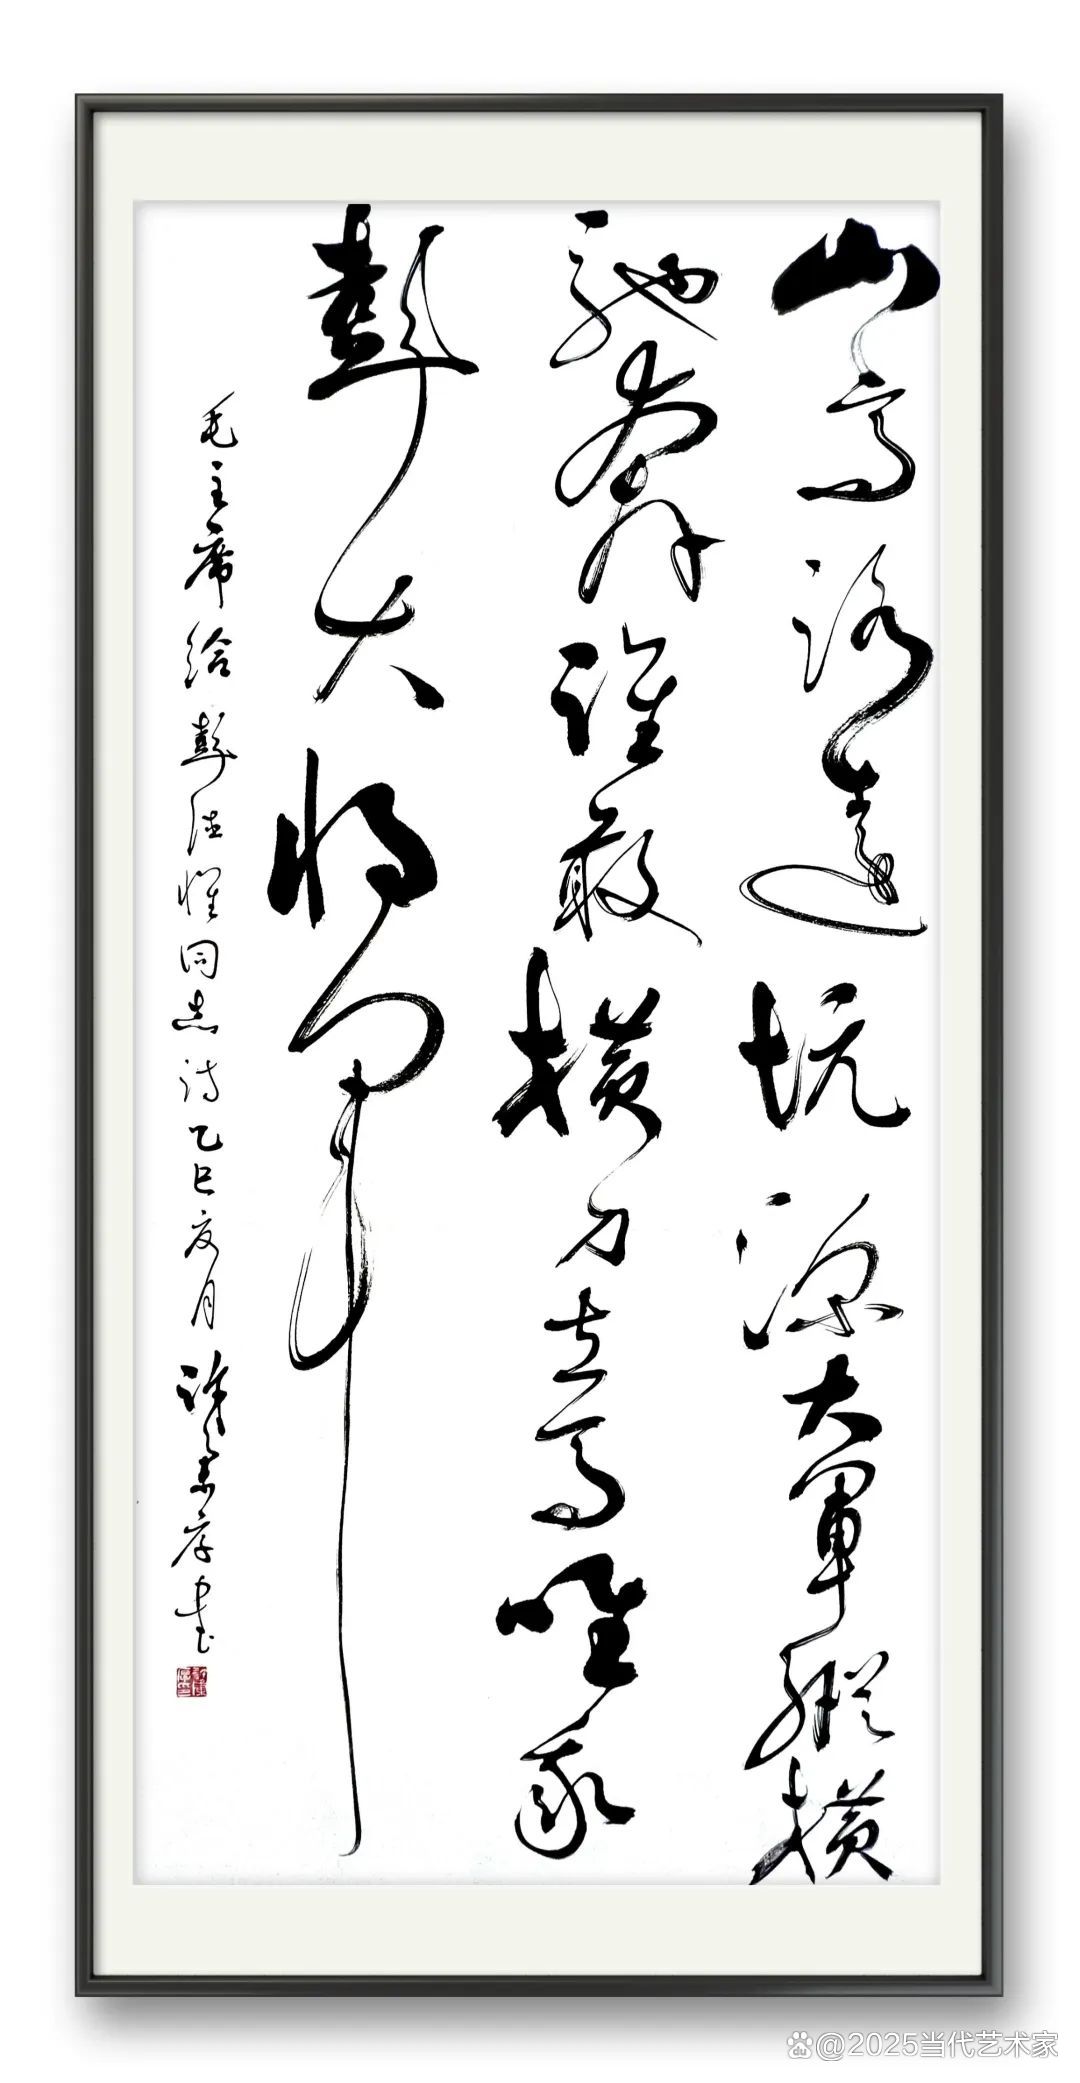 山高路远坑深大军纵横
驰奔谁敢横刀立马唯我
彭大将军
毛主席给彭德怀同志诗乙巳夏月许景存书
@2025当代艺术家